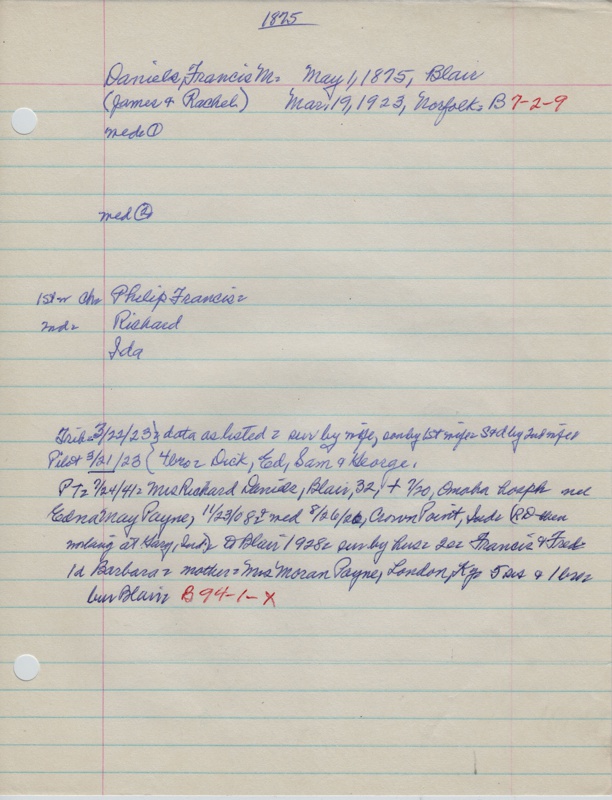 1875
Daniels, Francis M- May 1, 1875, Blair
(James & Rachel) Mar. 19, 1923, Norfolk- B 7-2-9
med- ①
med ②
1st w ch- Philip Francis-
2nd- Richard
Ida
Trib- 3/22/23 } data as listed- sur by wife, son by 1st wife- S & d by 2nd wife
Pilot 3/21/23 { 4 bro- Dick, Ed, Sam & George.
PT- 7/24/41- Mrs Richard Daniels, Blair, 32, + 7/20, Omaha hosp- nee
Edna May Payne, 11/23/08- med 8/26/26, Crown Point, Ind- RD then
working at Gary, Ind- to Blair 1928- sur by hus- 2s- Francis & Fred-
1d Barbara- mother- Mrs Moran Payne, London, Ky- 5 sis & 1 bro-
bur Blair- B 94-1-X